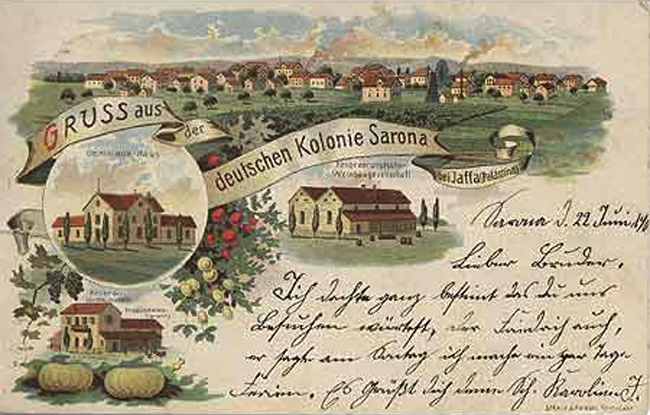 GRUSS aus der deutschen Kolonie Sarona
bei Jaffa (Palästina)
GEMEINDE-HAUS
Weinbaugesellschaft
Sarona d. 22 Juni
Lieber Bruder.
Ich dachte ganz bestimt das du uns
Besuchen würdest, der Friedrich auch,
er sagte am Sontag ich mache ein par Tage
Ferien. Es Grüßt dich deine Schw. Karoline